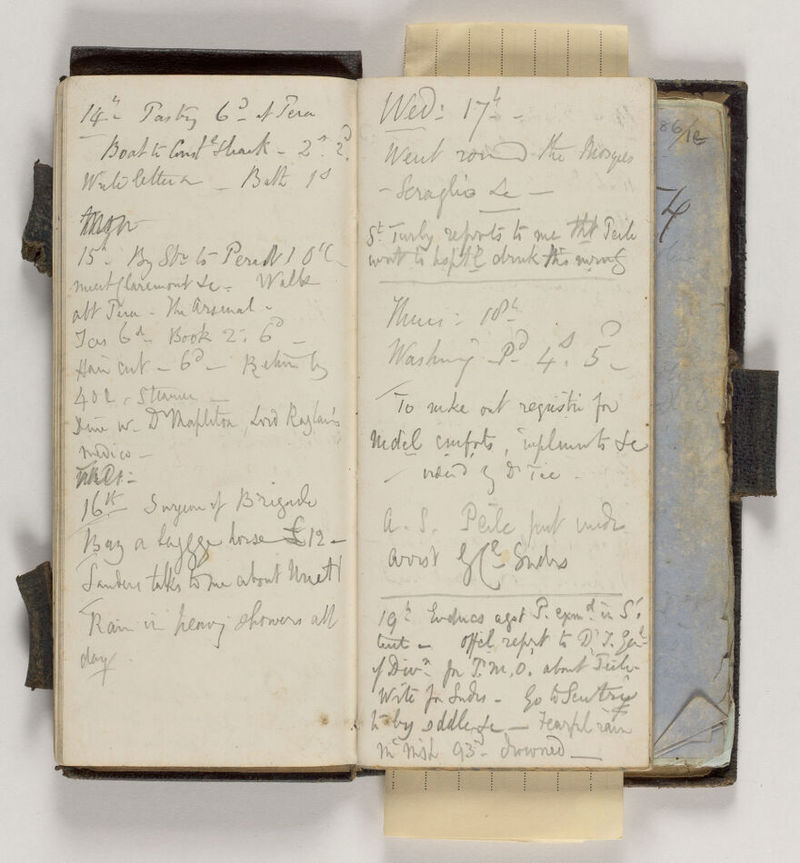 14th Pastry 6d at Pera
Boat to Const & back - 2s. 2d.
Write letters - Bath 1s
15th By Str to Pera
meet Claremont &c - Walk
abt Pera - the Arsenal -
Ices 6d - Book 2. 6d -
Hair cut - 6d - Return by
4 o c. Steamer -
Dine w. Dr Mapleton, Lord Raglan's
medico -
16th Surgeon of Brigade
Buy a baggage horse £12 -
Sanders talks to me about
Rain in heavy showers all
day.
Wed: 17th -
Went round the Mosques
- Seraglio &c -
St reports to me that Peile
went to hosptl drunk this morng
Thurs: 18th
Washing Pd 4s. 5d -
To make out register for
Medcl comforts, implements &c
by Dr Tice.
A. S. Peile put under
arrest by Cl
19th agst P. examd in S's
tent - offcl report to Dr T. Genl
of Divn for P.M.O. about Peile -
Write for - Go to Scutari
to buy saddle &c - Fearful rain
93d drowned -
86/1c